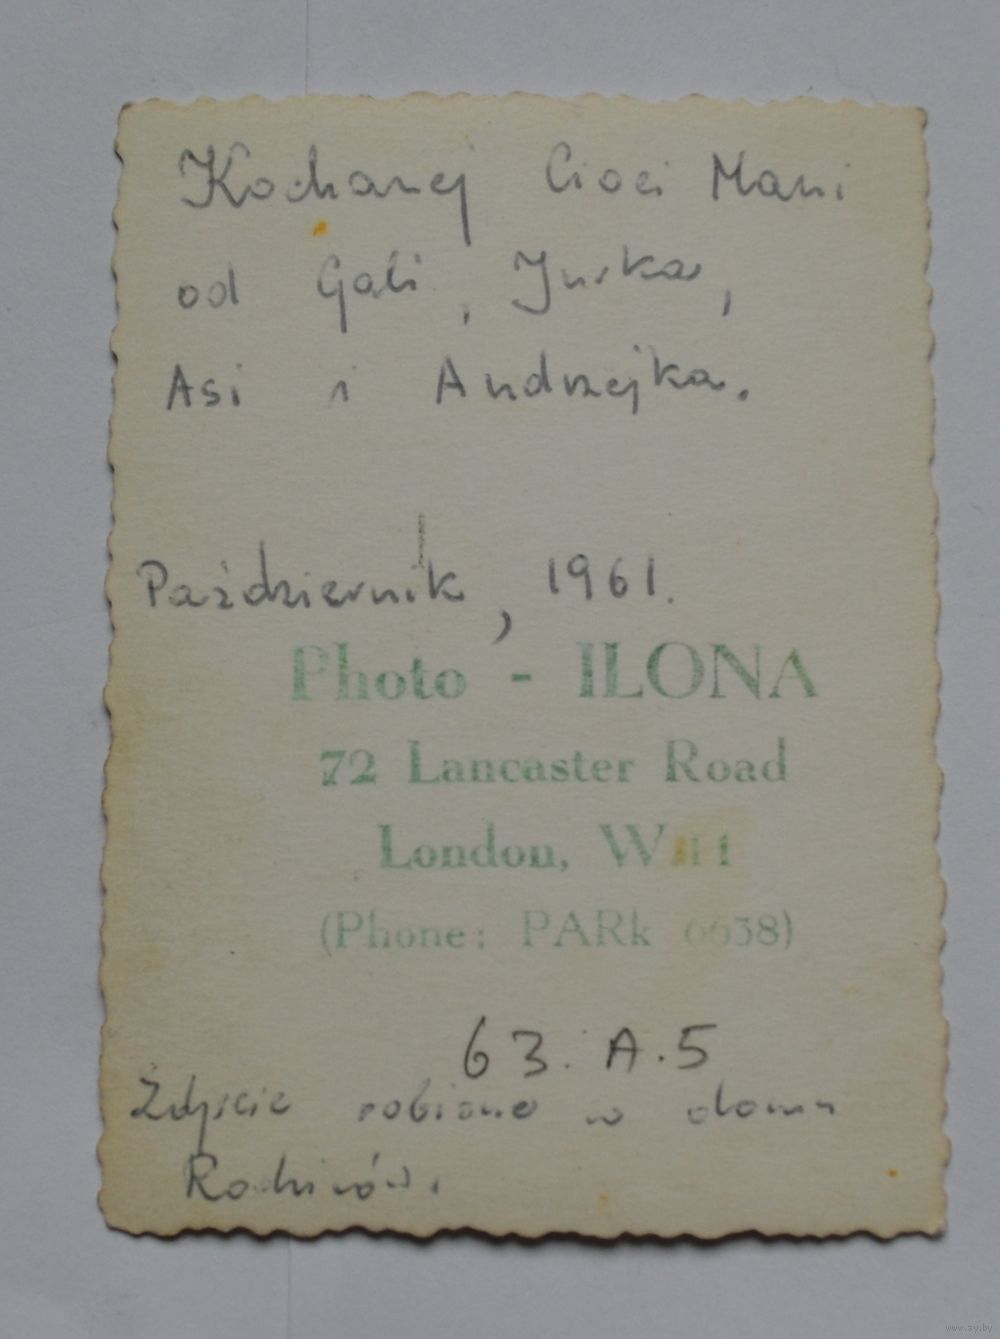 Kochanej Cioci Mani
od Gali, Jurka,
Asi i Andrzejka.
Październik, 1961.
Photo - ILONA
72 Lancaster Road
London, W 11
(Phone: PARk 6638)
63. A.5
Zdjęcie robione w domu
Rodziców.
www.ay.by